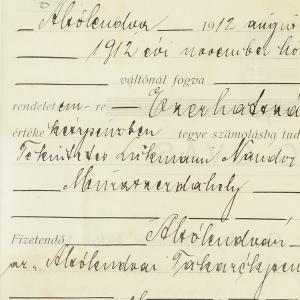 Alsólendva 1912 augus
1912 évi november hó
váltónál fogva
rendelet em- re Ezerhatszá
értéke készpénzben tegye számolásba tud
Tekintetes Lukmann Nándor
Muraszerdahely
Fizetendő Alsólendván
az „Alsólendvai Takarékpén